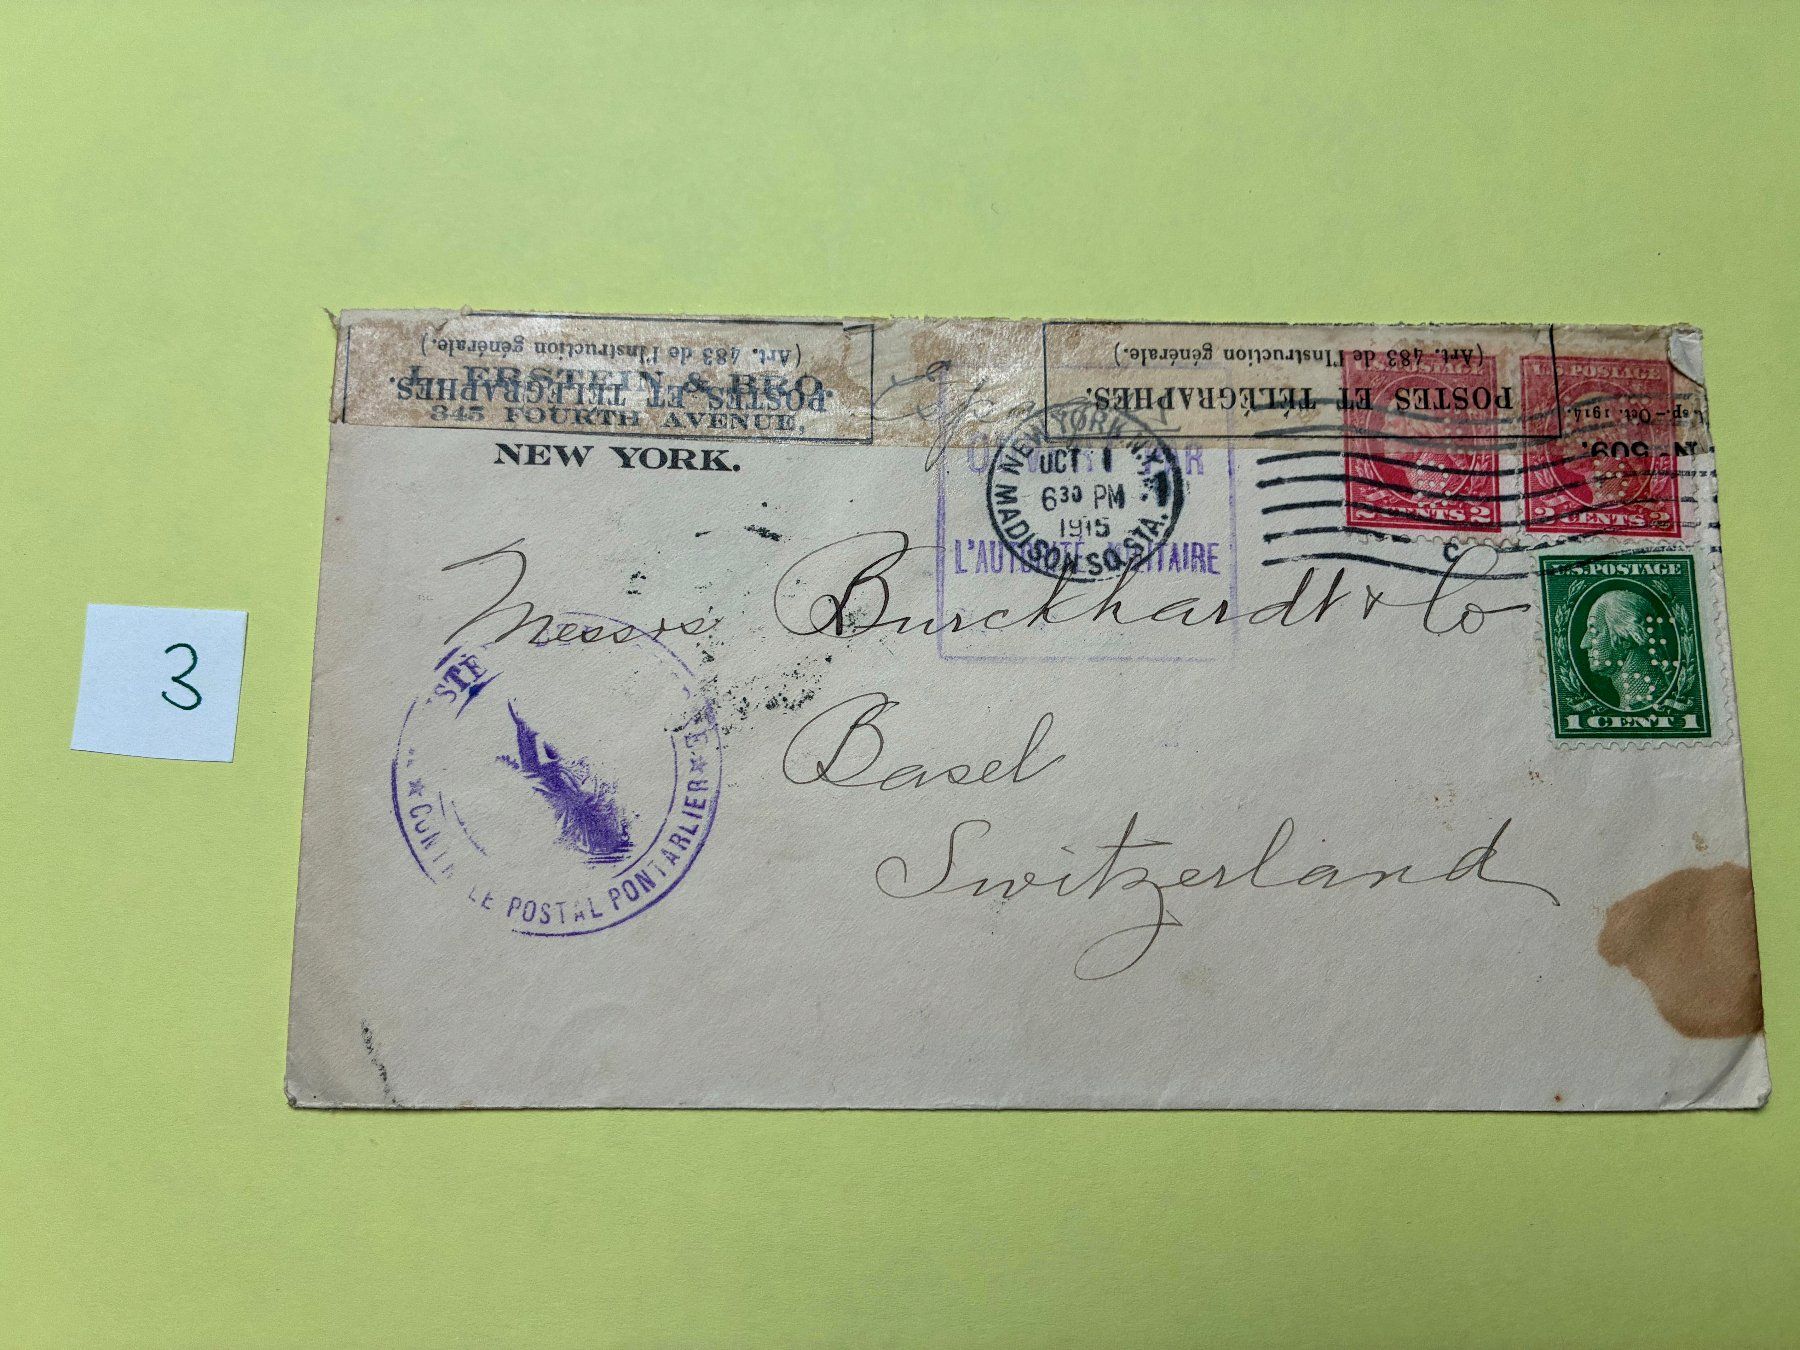 3
(Art. 483 de l'Instruction générale.)
POSTES ET TÉLÉGRAPHES.
ERSTEIN & BRO.
345 FOURTH AVENUE,
NEW YORK.
(Art. 483 de l'Instruction générale.)
POSTES ET TÉLÉGRAPHES.
Oct. 1914.
N° 509.
NEW YORK, N.Y.
OCT 1
6 30 PM
1915
MADISON SQ. STA.
L'AUTORITÉ MILITAIRE
C
U.S. POSTAGE
2 CENTS 2
U.S. POSTAGE
2 CENTS 2
U.S. POSTAGE
1 CENT 1
Messrs Burckhardt & Co
Basel
Switzerland
CONTRÔLE POSTAL PONTARLIER